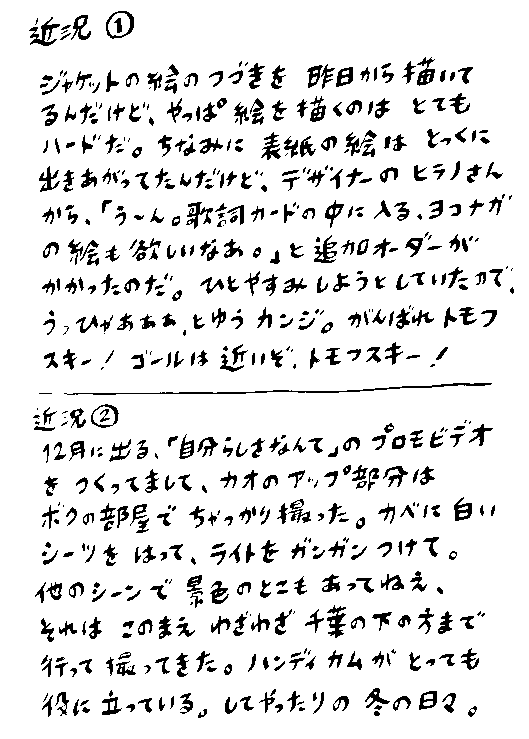 近況 ①
ジャケットの絵のつづきを 昨日から描いて
るんだけど、やっぱ絵を描くのは とても
ハードだ。ちなみに 表紙の絵は とっくに
出きあがってたんだけど、デザイナーの ヒラノさん
から、「う〜ん。歌詞カードの中に入る、ヨコナガ
の絵も欲しいなあ。」と追加オーダーが
かかったのだ。ひとやすみしようとしていたので、
うっひゃあああ、とゆうカンジ。がんばれトモフ
スキー！ゴールは近いぞ、トモフスキー！
近況②
12月に出る、「自分らしさなんて」のプロモビデオ
を つくってまして、カオのアップ部分は
ボクの部屋で ちゃっかり撮った。カベに白い
シーツを はって、ライトを ガンガンつけて。
他のシーンで 景色のとこも あってねえ、
それは このまえ わざわざ 千葉の下の方まで
行って 撮ってきた。ハンディカムが とっても
役に立っている。してやったりの 冬の日々。